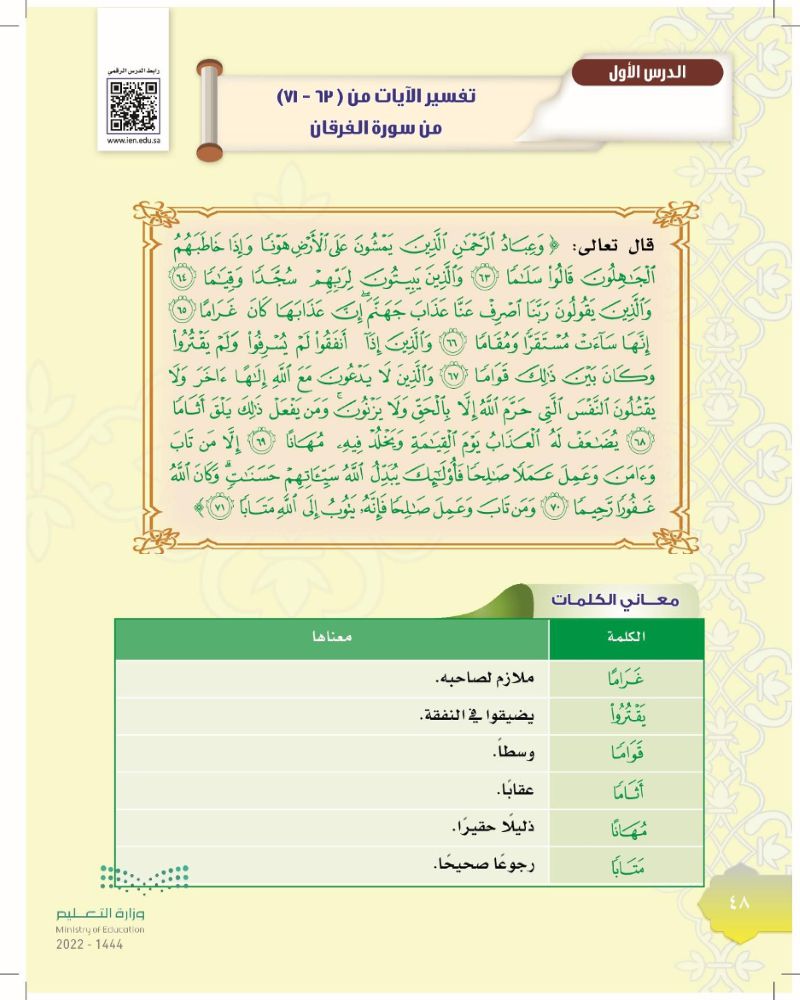 رابط الدرس الرقمي
www.ien.edu.sa
الدرس الأول
تفسير الآيات من (٦٣ - ٧١)
من سورة الفرقان
قال تعالى: ﴿ وَعِبَادُ الرَّحْمَٰنِ الَّذِينَ يَمْشُونَ عَلَى الْأَرْضِ هَوْنًا وَإِذَا خَاطَبَهُمُ
الْجَاهِلُونَ قَالُوا سَلَامًا ٦٣ وَالَّذِينَ يَبِيتُونَ لِرَبِّهِمْ سُجَّدًا وَقِيَامًا ٦٤
وَالَّذِينَ يَقُولُونَ رَبَّنَا اصْرِفْ عَنَّا عَذَابَ جَهَنَّمَ ۖ إِنَّ عَذَابَهَا كَانَ غَرَامًا ٦٥
إِنَّهَا سَاءَتْ مُسْتَقَرًّا وَمُقَامًا ٦٦ وَالَّذِينَ إِذَا أَنفَقُوا لَمْ يُسْرِفُوا وَلَمْ يَقْتُرُوا
وَكَانَ بَيْنَ ذَٰلِكَ قَوَامًا ٦٧ وَالَّذِينَ لَا يَدْعُونَ مَعَ اللَّهِ إِلَٰهًا ءَاخَرَ وَلَا
يَقْتُلُونَ النَّفْسَ الَّتِي حَرَّمَ اللَّهُ إِلَّا بِالْحَقِّ وَلَا يَزْنُونَ ۚ وَمَن يَفْعَلْ ذَٰلِكَ يَلْقَ أَثَامًا
٦٨ يُضَاعَفْ لَهُ الْعَذَابُ يَوْمَ الْقِيَامَةِ وَيَخْلُدْ فِيهِ مُهَانًا ٦٩ إِلَّا مَن تَابَ
وَءَامَنَ وَعَمِلَ عَمَلًا صَالِحًا فَأُولَٰئِكَ يُبَدِّلُ اللَّهُ سَيِّئَاتِهِمْ حَسَنَاتٍ ۗ وَكَانَ اللَّهُ
غَفُورًا رَّحِيمًا ٧٠ وَمَن تَابَ وَعَمِلَ صَالِحًا فَإِنَّهُ يَتُوبُ إِلَى اللَّهِ مَتَابًا ٧١ ﴾
معـــاني الكلمات
الكلمة معناها
غَرَامًا ملازم لصاحبه.
يَقْتُرُوا يضيقوا في النفقة.
قَوَامًا وسطاً.
أَثَامًا عقابًا.
مُهَانًا ذليلًا حقيرًا.
مَتَابًا رجوعًا صحيحًا.
وزارة التعـــليم
Ministry of Education
2022 - 1444
٤٨